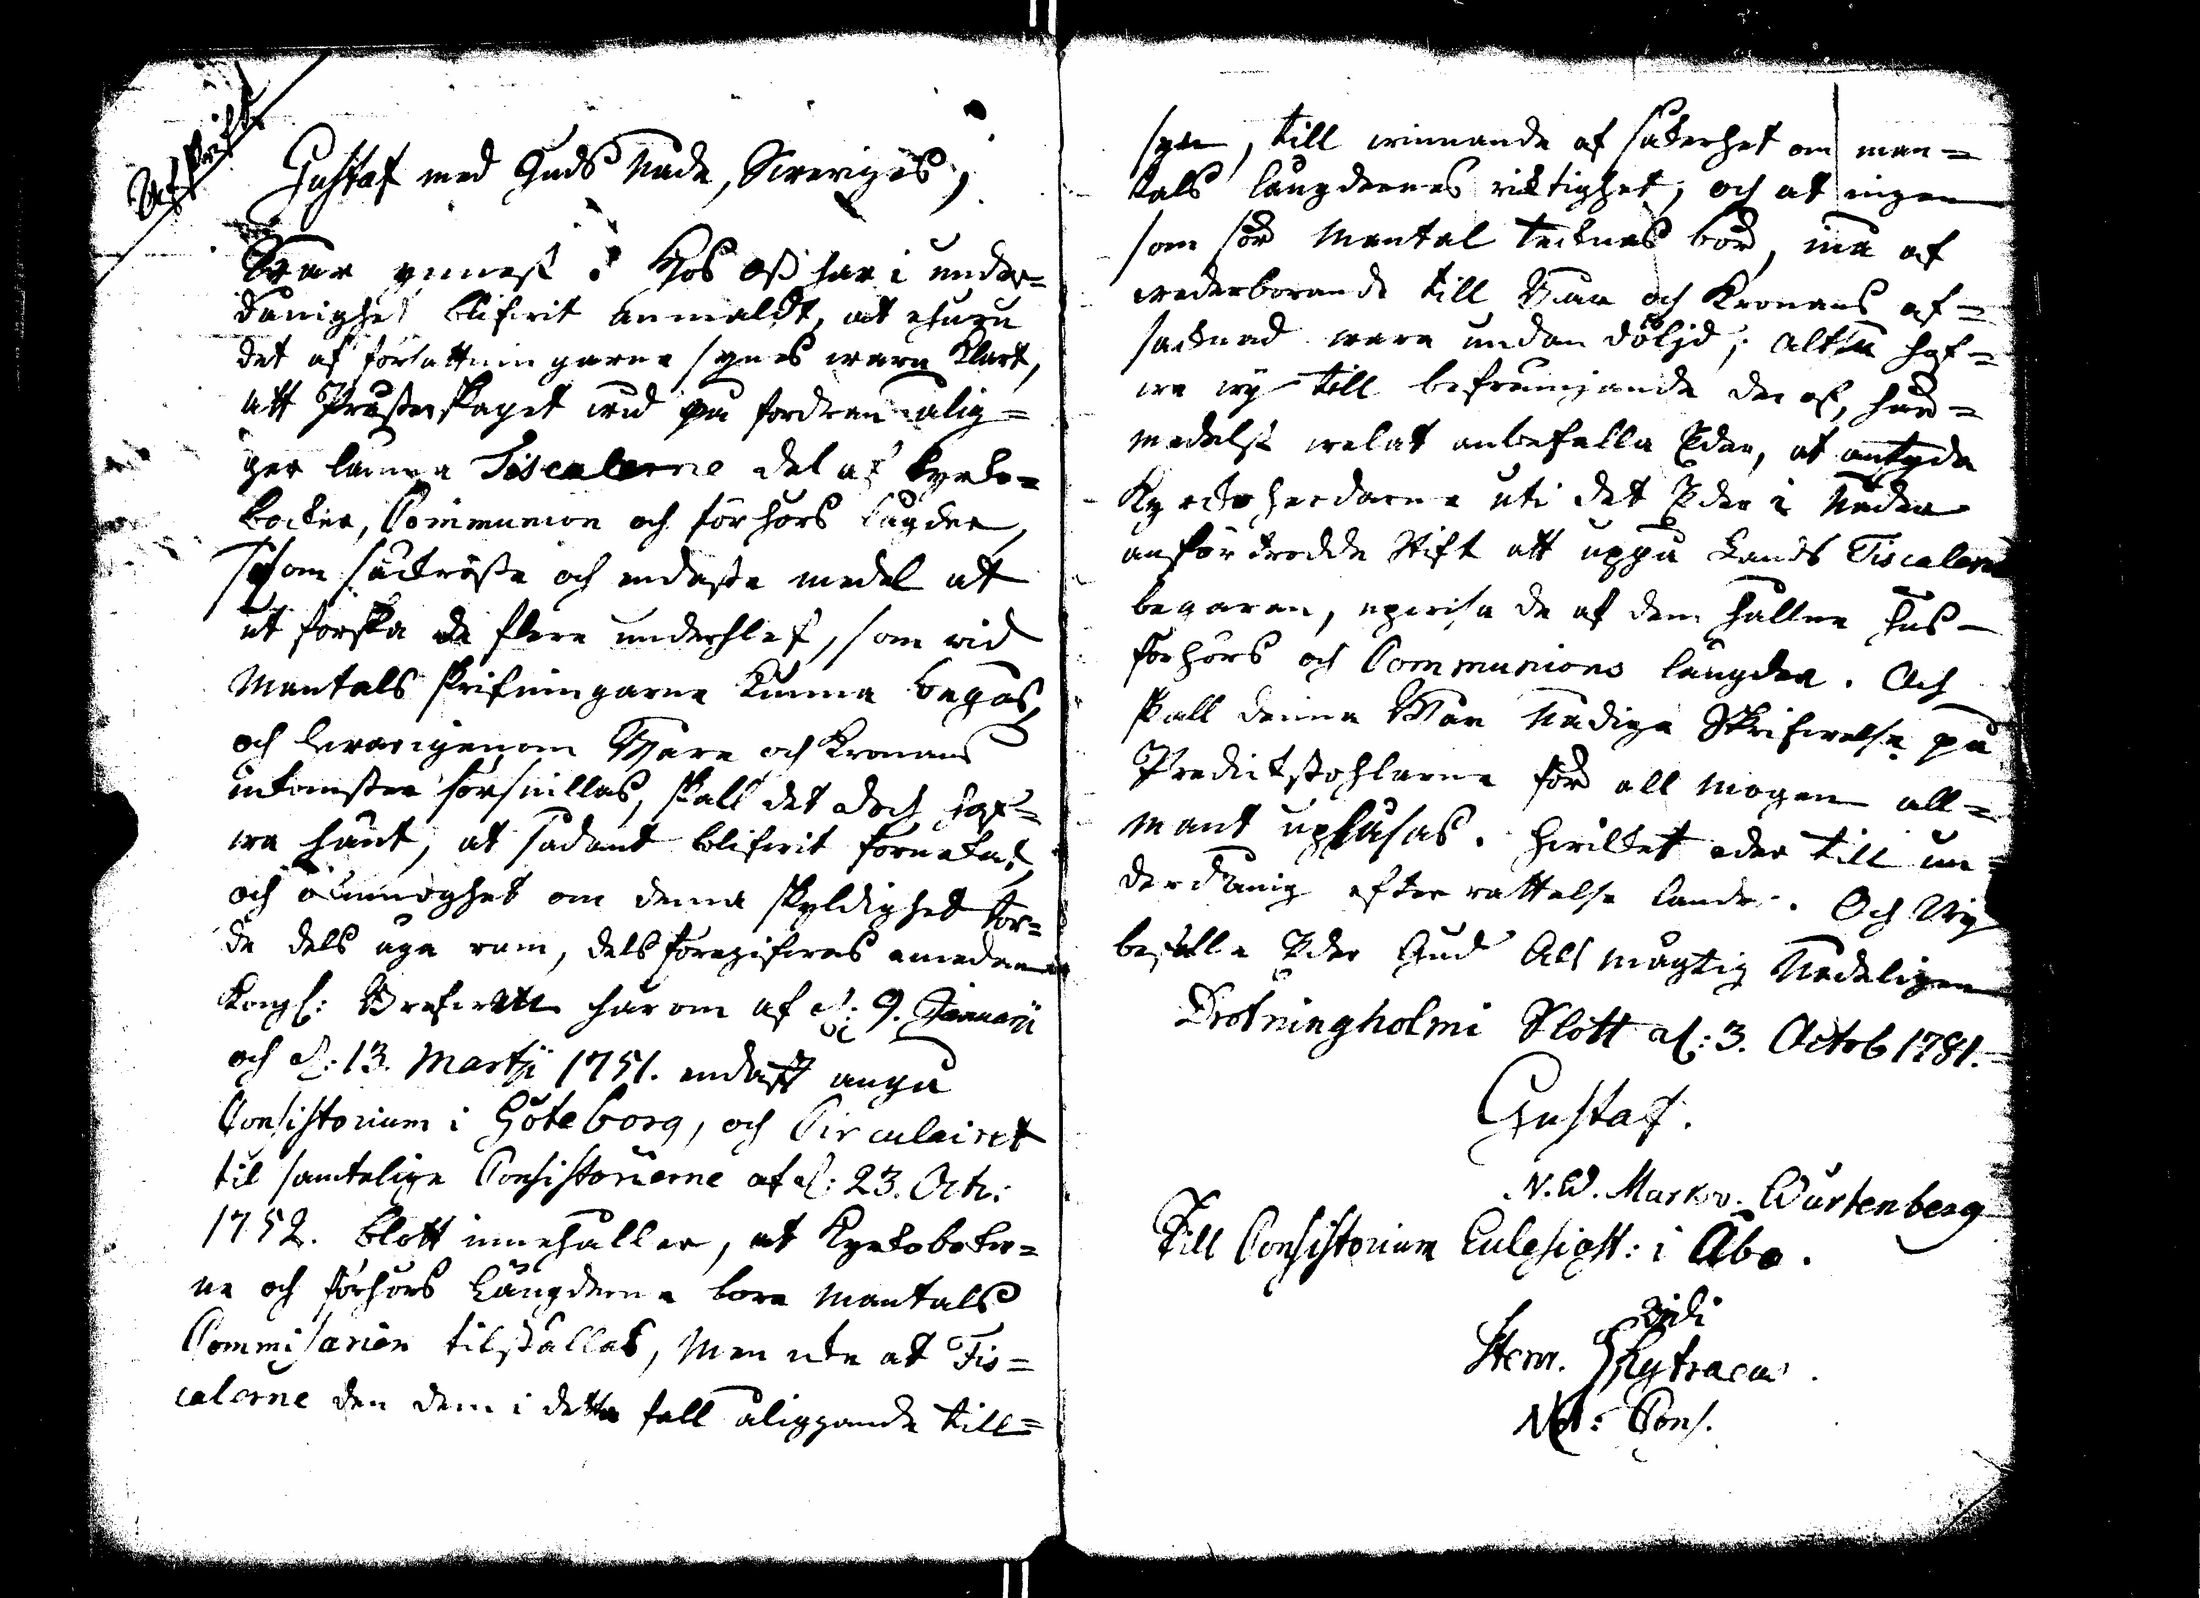 Afskrift
Gustaf med Guds Nåde, Sweriges,
Wår ynnest Hos Oß har i under=
dånighet blifwit anmäldt, at ehuru
det af författningarne synes wara klart,
att Prästerskapet wid på fordran ålig=
ger lämna Fiscalerne del af kyrko=
böcker, Communion och förhörs längder,
såsom säkräste och endaste medel at
utforska de flere underslef, som wid
Mantals skrifningarne kunna begås,
och hwarigenom Wåre och Kronans
inkomster försnillas, skall det doch haf=
wa händt, at sådant blifwit förnekat,
och okunnoghet om denna skyldighet tor=
de dels äga rum, dels föregifwas emedan
Kongl: Brefwen härom af d: 9. Januarii
och d: 13. Martii 1751. endast angå
Consistorium i Göteborg, och Circulairet
til samtelige Consistorierne af d: 23. Octr:
1752. blott innehåller, at Kyrkoböcker=
ne och förhörs Längderne böra Mantals
Commissarien tilställas, Men icke at Fis=
calerne den dem i detta fall åliggande till=
syn, till winnande af säkerhet om man=
tals längdernes riktighet, och at ingen
som för Mantal tecknas bör, må af
wederbörande till Wår och Kronans af=
saknad wara undandöljd; Altså haf=
we wy till befrämjande der af, här=
medelst welat anbefalla Eder, at antyda
Kyrckoherdarne uti det Eder i Nåder
anförtrodde Stift att uppå Lands Fiscalens
begäran, upwisa de af dem hållne hus=
förhörs och Communions längder. Och
skall denna Wår Nådiga Skrifwelse på
Predickstohlarne för allmogen all=
mänt upläsas. Hwilket eder till un=
derdånig efterrättelse länder. Och Wy
befalle Eder Gud Alsmägtig Nådeligen
Drotningholms Slott d: 3. Octrb 1781.
Gustaf.
N. W. Marks v. Würtenberg
Till Consistorium Eclesiast: i Åbo.
Vidi
Henr. Skytraeus.
Not: Cons.